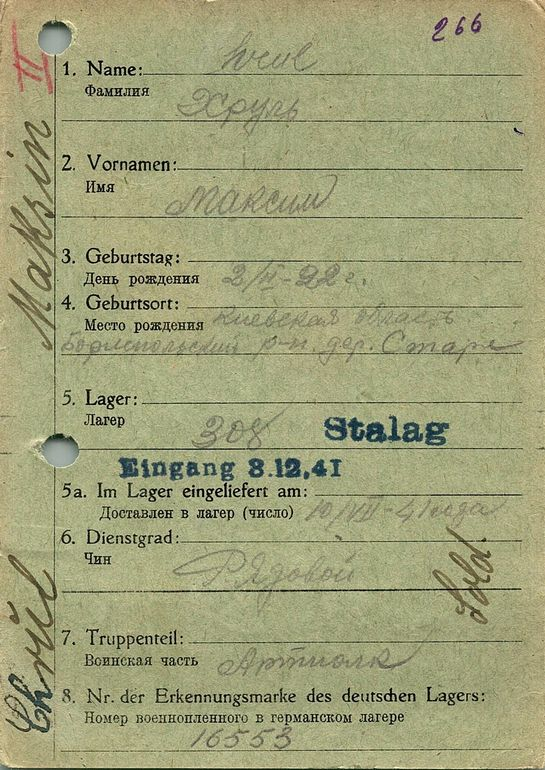 266
II
Maksin
Chrül
1. Name:
Фамилия
Хруль
2. Vornamen:
Имя
Максим
3. Geburtstag:
День рождения 2/II-22 г.
4. Geburtsort:
Место рождения Киевская область
р-н. дер. Старе
5. Lager:
Лагер 308 Stalag
Eingang 8.12.41
5a. Im Lager eingeliefert am:
Доставлен в лагер (число) 10/VIII-41 года
6. Dienstgrad:
Чин
Рядовой Sold.
7. Truppenteil:
Воинская часть Артполк
8. Nr. der Erkennungsmarke des deutschen Lagers:
Номер военнопленного в германском лагере
16553